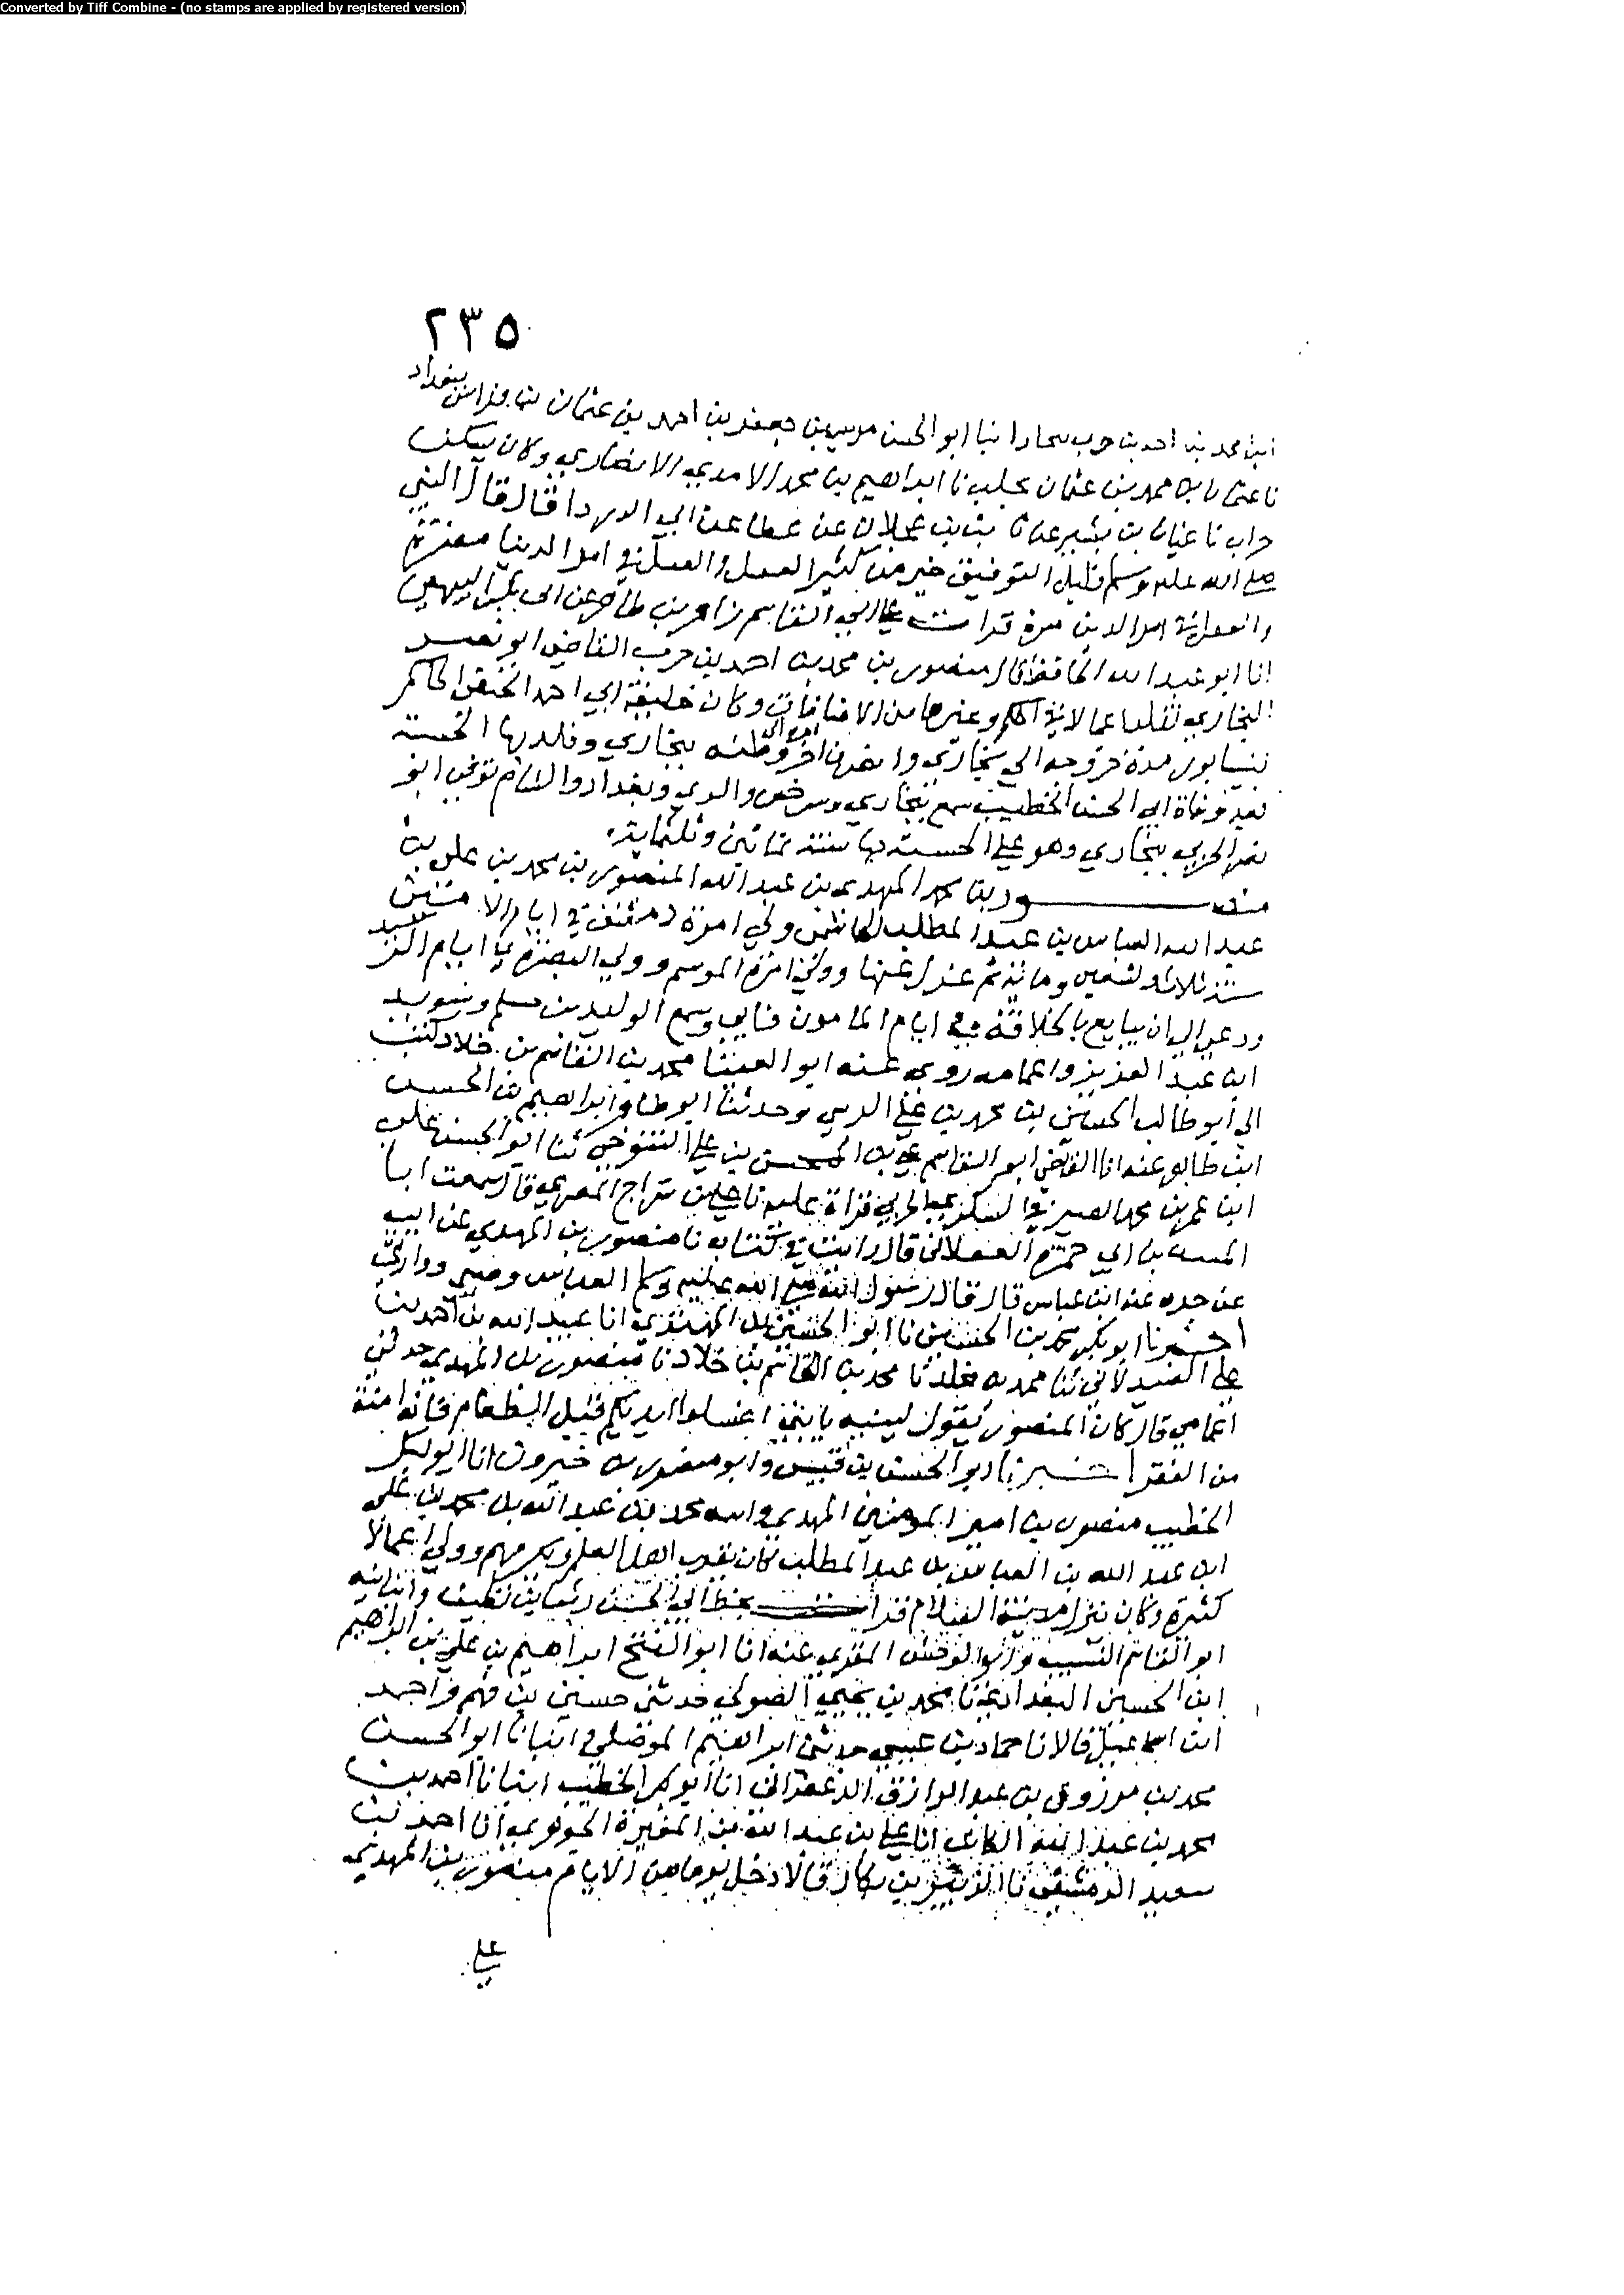 Converted by Tiff Combine - (no stamps are applied by registered version)
٢٣٥
ابن محمد بن احمد بن حرب ابنا ابو الحسن موسى بن جعفر بن احمد بن عثمان بن ببغداد
نا عثمان بن محمد بن عثمان بحلب نا ابراهيم بن محمد الانصاري وكان يسكن
نا بن بشير عن ثابت بن عجلان عن عطا عن ابي الدردا قال قال النبي
صلى الله عليه وسلم قليل التوفيق خير من كثير العمل والعمل في امر الدنيا مضرة
والعمل في امر الدين مسرة قرات على ابي القاسم زاهر بن طاهر عن ابي بكر البيهقي
انا ابو عبد الله الحافظ قال منصور بن محمد بن احمد بن حرب القاضي ابو نصر
البخاري تقلد اعمالا في الحكم وغيرها من وكان خليفة ابي احمد الحنفي الحاكم
نيسابور مدة خروجه الى بخارى وانصرف اخرا الى وطنه ببخارى وقلد بها الحسبة
بعد وفاة ابي الحسن الخطيب سمع ببخارى وسرخس والري وبغداد والشام توفي ابو
نصر الحربي ببخارى وهو على الحسبة بها سنة ثمانين وثلثماية
منصور بن محمد المهدي بن عبد الله المنصور بن محمد بن علي بن
عبد الله العباس بن عبد المطلب الهاشمي ولي امرة دمشق في ايام الامين
سنة ثلاث وتسعين وماية ثم عزل عنها وولي امرة الموسم وولي البصرة في ايام الرشيد
ودعي الى ان يبايع بالخلافة في ايام المامون فابى وسمع الوليد بن مسلم وسويد
ابن عبد العزيز واعمامه روى عنه ابو العينا محمد بن القاسم بن خلاد كتب
الى ابو طالب الحسين بن محمد بن علي الزينبي وحدثنا ابو طاهر ابراهيم بن الحسن
ابن طاهر عنه انا القاضي ابو القاسم علي بن المحسن بن علي التنوخي ثنا ابو الحسن علي
ابن عمر بن محمد الصيرفي السكري الحربي قراة عليه نا علي بن سراج المصري قال سمعت ابا
بن ابي حمزة العسقلاني قال رايت في كتاب نا منصور بن المهدي عن ابيه
عن جده عن ابن عباس قال قال رسول الله صلى الله عليه وسلم العباس وصيي ووارثي
اخبرنا ابو بكر محمد بن الحسين نا ابو الحسين بن المهتدي انا عبيد الله بن احمد بن
علي الصيدلاني ثنا محمد بن مخلد نا محمد بن القاسم بن خلاد نا منصور بن المهدي حدثني
اعمامي قال كان المنصور يقول لبنيه يا بني اغسلوا ايديكم قبل الطعام فانه امنة
من الفقر اخبرنا ابو الحسن بن قبيس وابو منصور بن خيرون انا ابو بكر
الخطيب منصور بن امير المومنين المهدي واسمه محمد بن عبد الله بن محمد بن علي
ابن عبد الله بن العباس بن عبد المطلب كان يقرب اهل العلم ويكرمهم وولي اعمالا
كثيرة وكان ينزل مدينة السلام قرات بخط ابي الحسن رشا بن نظيف وانبانيه
ابو القاسم النسيب وابو الوحش المقري عنه انا ابو الفتح ابراهيم بن علي بن ابراهيم
ابن الحسين البغدادي نا محمد بن يحيى الصولي حدثني حسين بن فهم واحمد
ابن اسماعيل قالا نا حماد بن حدثني ابراهيم الموصلي وانبانا ابو الحسن
محمد بن مرزوق بن عبد الرازق الزعفراني انا ابو بكر الخطيب انبانا احمد بن
محمد بن عبد الله الكاتب انا علي بن عبد الله بن المغيرة الجوهري انا احمد بن
سعيد الدمشقي نا الزبير بن بكار قالا دخل يوما من الايام منصور بن المهدي
على